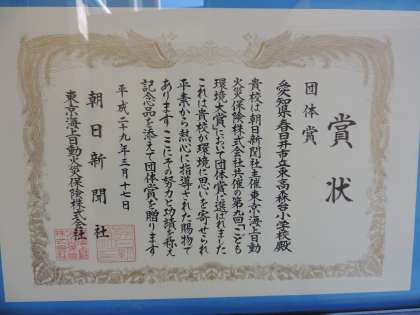 賞状
団体賞
愛知県春日井市立東高森台小学校殿
貴校は朝日新聞社主催東京海上日動
火災保険株式会社共催の第九回「こども
環境大賞」において団体賞に選ばれました
これは貴校が環境に思いを寄せられ
平素から熱心に指導された賜物で
あります ここにその努力と功績を称え
記念品を添えて団体賞を贈ります
平成二十九年三月十七日
朝日新聞社
東京海上日動火災保険株式会社